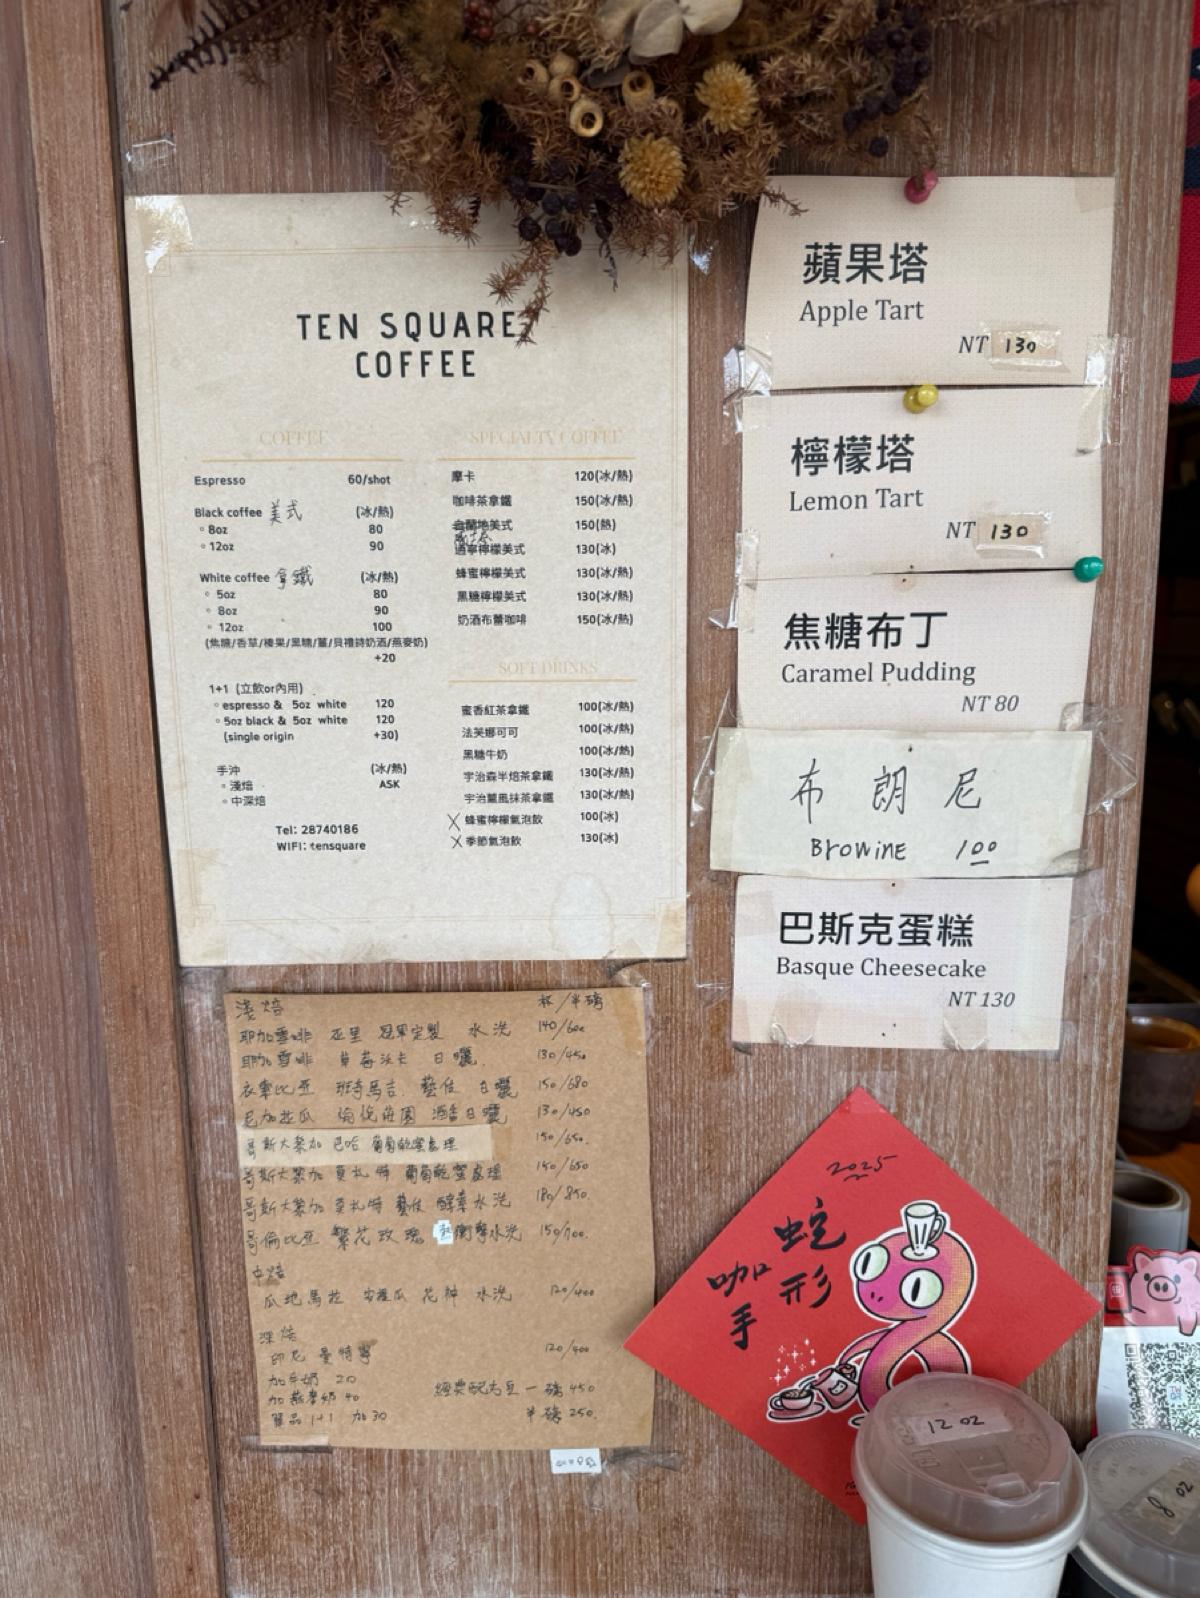 TEN SQUARE
COFFEE
COFFEE
Espresso 60/shot
Black coffee 美式 (冰/熱)
◦ 8oz 80
◦ 12oz 90
White coffee 拿鐵 (冰/熱)
◦ 5oz 80
◦ 8oz 90
◦ 12oz 100
(焦糖/香草/榛果/黑糖/薑/貝禮詩奶酒/燕麥奶)
+20
1+1 (立飲or內用)
◦ espresso & 5oz white 120
◦ 5oz black & 5oz white 120
(single origin +30)
手沖 (冰/熱)
◦ 淺焙 ASK
◦ 中深焙
Tel: 28740186
WIFI: tensquare
SPECIALTY COFFEE
摩卡 120(冰/熱)
咖啡茶拿鐵 150(冰/熱)
美式 150(熱)
檸檬美式 130(冰)
蜂蜜檸檬美式 130(冰/熱)
黑糖檸檬美式 130(冰/熱)
奶酒布蕾咖啡 150(冰/熱)
SOFT DRINKS
蜜香紅茶拿鐵 100(冰/熱)
法芙娜可可 100(冰/熱)
黑糖牛奶 100(冰/熱)
宇治森半焙茶拿鐵 130(冰/熱)
宇治薰風抹茶拿鐵 130(冰/熱)
X 蜂蜜檸檬氣泡飲 100(冰)
X 季節氣泡飲 130(冰)
蘋果塔
Apple Tart
NT 130
檸檬塔
Lemon Tart
NT 130
焦糖布丁
Caramel Pudding
NT 80
布朗尼
Browine 100
巴斯克蛋糕
Basque Cheesecake
NT 130
淺焙 杯/半磅
耶加雪啡 冠軍定製 水洗 140/600
耶加雪啡 草莓沃卡 日曬 130/450
衣索比亞 班奇馬吉 藝伎 日曬 150/680
尼加拉瓜 莊園 酒香日曬 130/450
哥斯大黎加 巴哈 葡萄乾蜜處理 150/650
哥斯大黎加 莫札特 葡萄乾蜜處理 150/650
哥斯大黎加 莫札特 藝伎 酵素水洗 180/850
哥倫比亞 繁花玫瑰 熱衝擊水洗 150/700
中焙
瓜地馬拉 安提瓜 花神 水洗 120/400
深焙
印尼 曼特寧 120/400
加牛奶 20
加燕麥奶 40
單品 1+1 加30
經典配方豆 一磅 450
半磅 250
2025
蛇形
咖手
12 oz
8 oz